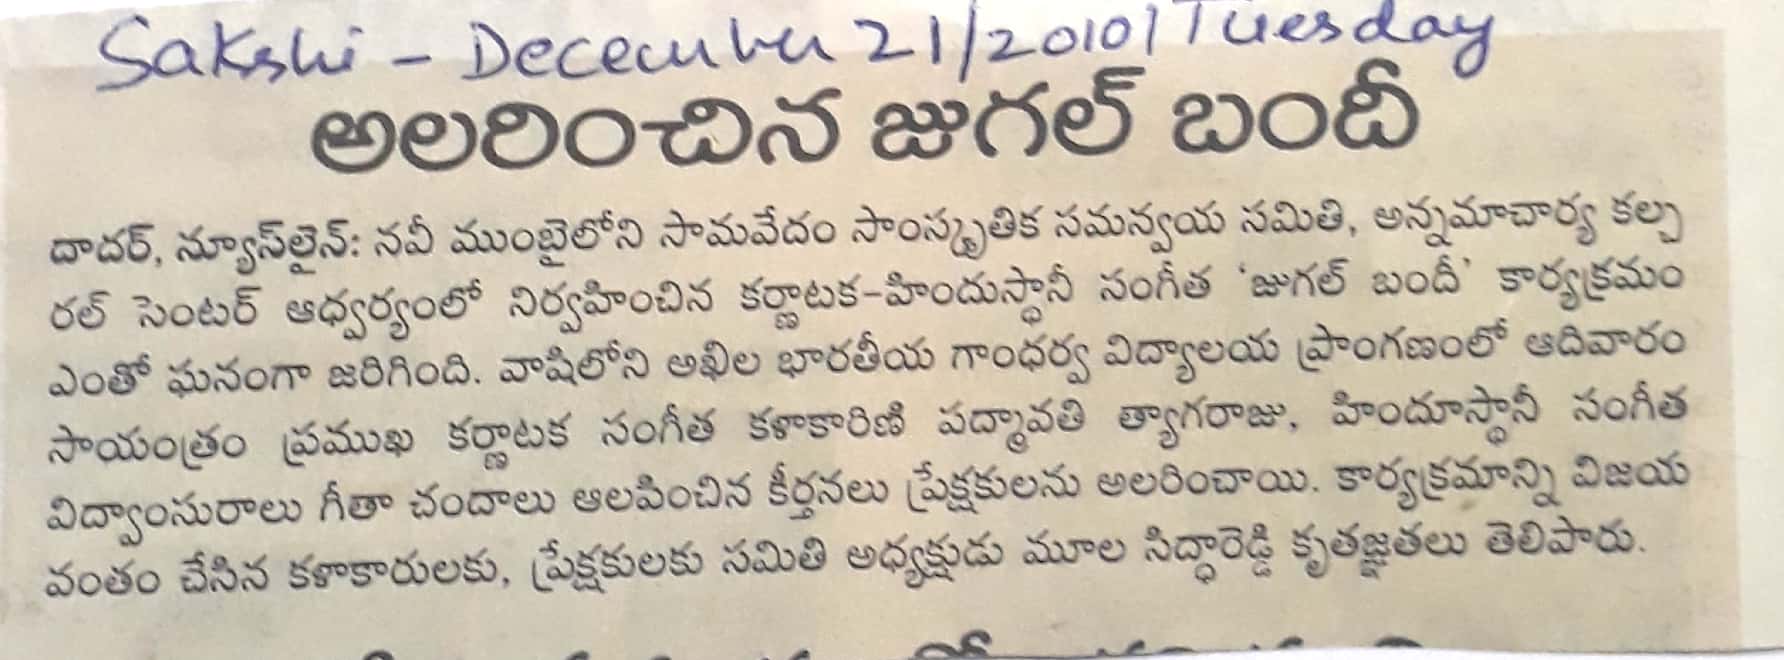 Sakshi - December 21/2010/Tuesday
అలరించిన జుగల్ బందీ
దాదర్, న్యూస్‌లైన్: నవీ ముంబైలోని సామవేదం సాంస్కృతిక సమన్వయ సమితి, అన్నమాచార్య కల్చ
రల్ సెంటర్ ఆధ్వర్యంలో నిర్వహించిన కర్ణాటక-హిందుస్థానీ సంగీత 'జుగల్ బందీ' కార్యక్రమం
ఎంతో ఘనంగా జరిగింది. వాషిలోని అఖిల భారతీయ గాంధర్వ విద్యాలయ ప్రాంగణంలో ఆదివారం
సాయంత్రం ప్రముఖ కర్ణాటక సంగీత కళాకారిణి పద్మావతి త్యాగరాజు, హిందూస్థానీ సంగీత
విద్వాంసురాలు గీతా చందాలు ఆలపించిన కీర్తనలు ప్రేక్షకులను అలరించాయి. కార్యక్రమాన్ని విజయ
వంతం చేసిన కళాకారులకు, ప్రేక్షకులకు సమితి అధ్యక్షుడు మూల సిద్ధారెడ్డి కృతజ్ఞతలు తెలిపారు.